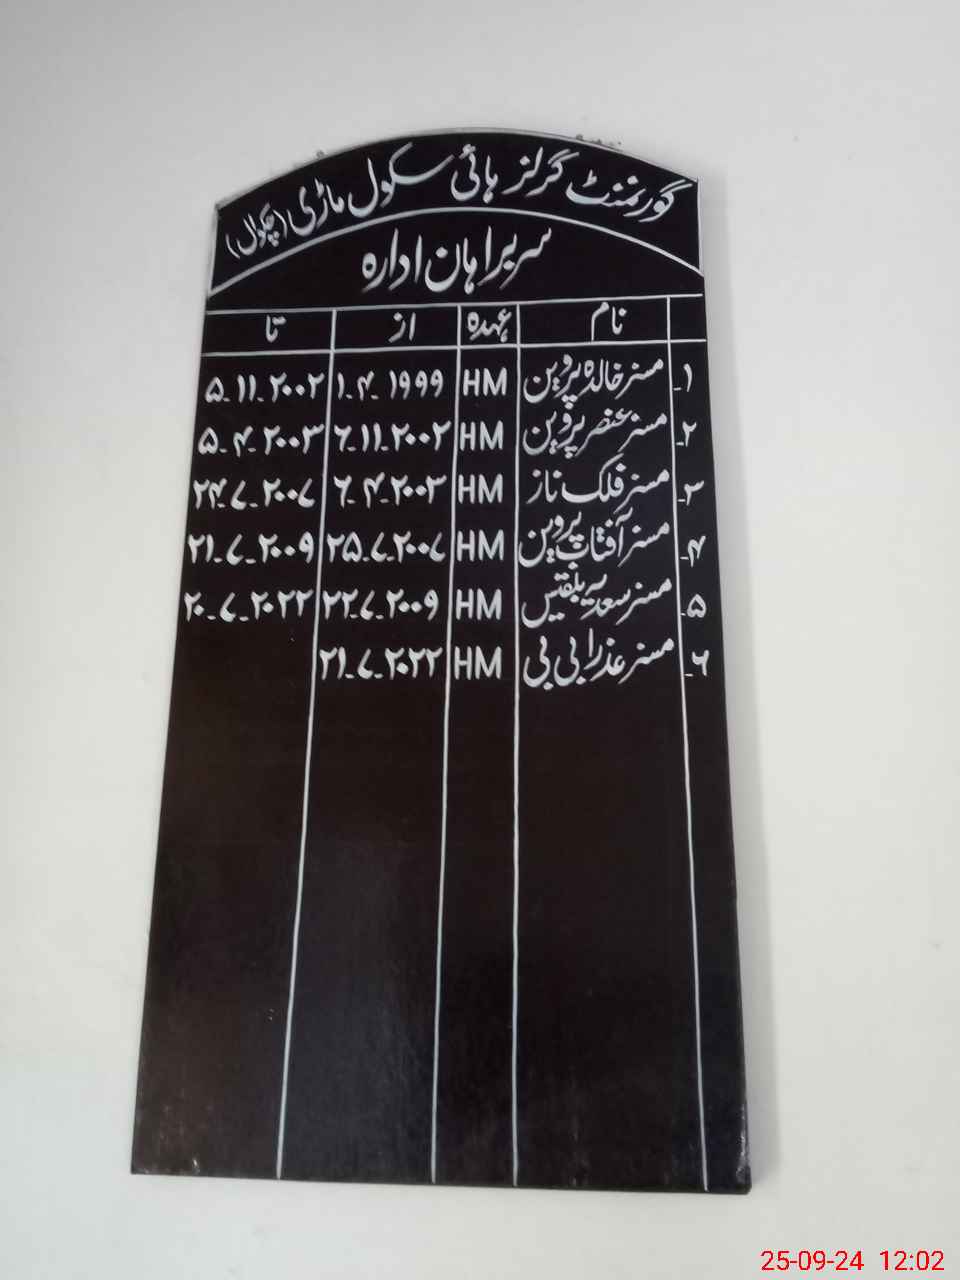 گورنمنٹ گرلز ہائی سکول ماڑی (چکوال)
سربراہان ادارہ
نام عہدہ از تا
۱۔ مسز خالدہ پروین HM ۱.۴.۱۹۹۹ ۵.۱۱.۲۰۰۲
۲۔ مسز عنصر پروین HM ۶.۱۱.۲۰۰۲ ۵.۴.۲۰۰۳
۳۔ مسز فلک ناز HM ۶.۴.۲۰۰۳ ۲۴.۷.۲۰۰۷
۴۔ مسز آفتاب پروین HM ۲۵.۷.۲۰۰۷ ۲۱.۷.۲۰۰۹
۵۔ مسز سعدیہ بلقیس HM ۲۲.۷.۲۰۰۹ ۲۰.۷.۲۰۲۲
۶۔ مسز عذرا بی بی HM ۲۱.۷.۲۰۲۲
25-09-24 12:02